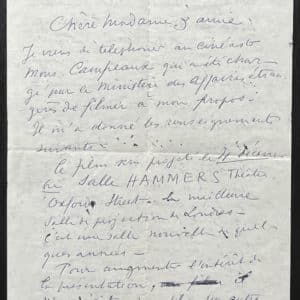 Chère Madame, & amie :
Je viens de téléphoner au cinéaste
Mons Campeaux qui a été char-
gé par le Ministère des Affaires étran
gères de filmer à mon propos.
Il m'a donné les renseignements
suivants :
Le film sera projeté le 4 Décembre
Salle HAMMERS Théâtre
Oxford Street. la meilleure
Salle de projection de Londres.
C'est une salle nouvelle de quel-
ques années —
Pour augmenter l'intérêt de
la présentation,